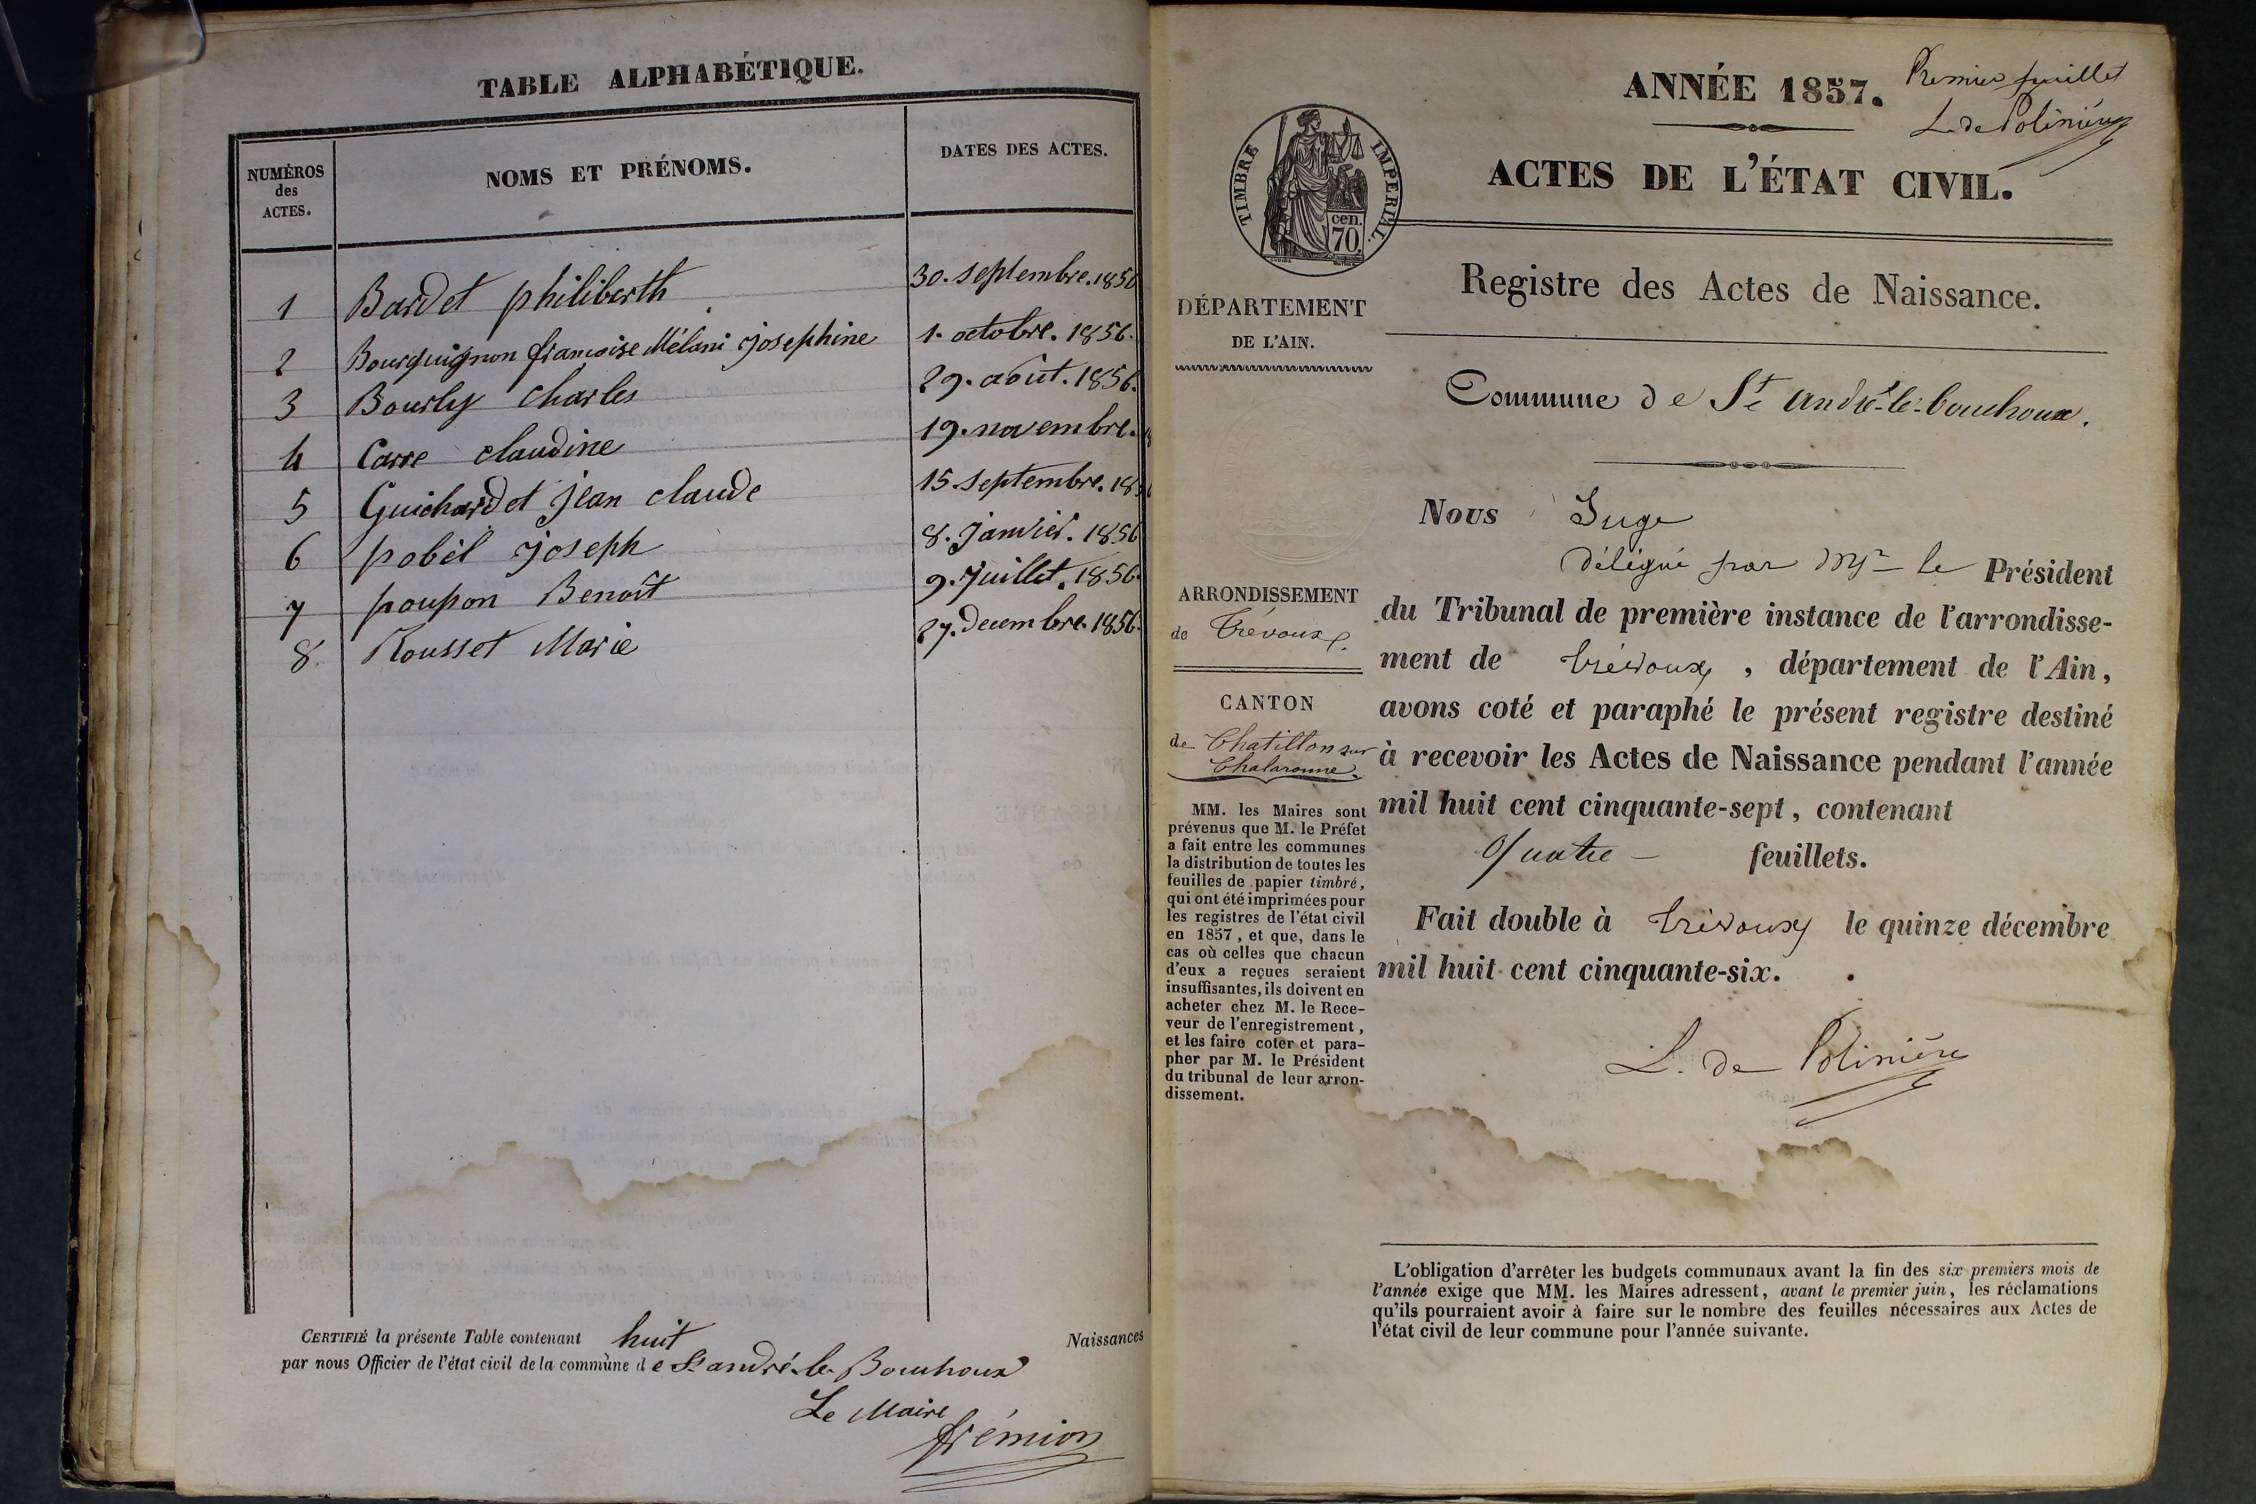 TABLE ALPHABÉTIQUE.
NUMÉROS
des
ACTES.
NOMS ET PRÉNOMS.
DATES DES ACTES.
1 Bardet philiberth 30. septembre. 1856
2 Bourguignon francoise Mélani josephine 1. octobre. 1856.
3 Bourly charles 29. août. 1856.
4 Carre claudine 19. novembre. 18
5 Guichardet jean claude 15. septembre. 1856
6 pobel joseph 8. janvier. 1856
7 poupon Benoît 9. juillet. 1856.
8. Rousset Marie 27. decembre. 1856.
CERTIFIÉ la présente Table contenant huit Naissances
par nous Officier de l'état civil de la commune de St andré-le-Bouchoux
Le Maire
frémion
Premier feuillet
L. de Polinière
ANNÉE 1857.
ACTES DE L'ÉTAT CIVIL.
TIMBRE IMPERIAL.
cen.
70.
Registre des Actes de Naissance.
DÉPARTEMENT
DE L'AIN.
Commune de St andré-le-bouchoux.
Nous Juge
délégué par Mr le Président
du Tribunal de première instance de l'arrondisse-
ment de Trévoux, département de l'Ain,
avons coté et paraphé le présent registre destiné
à recevoir les Actes de Naissance pendant l'année
mil huit cent cinquante-sept, contenant
Quatre - feuillets.
Fait double à Trévoux le quinze décembre
mil huit cent cinquante-six.
L. de Polinière
ARRONDISSEMENT
de Trévoux.
CANTON
de Chatillon sur
Chalaronne.
MM. les Maires sont
prévenus que M. le Préfet
a fait entre les communes
la distribution de toutes les
feuilles de papier timbré,
qui ont été imprimées pour
les registres de l'état civil
en 1857, et que, dans le
cas où celles que chacun
d'eux a reçues seraient
insuffisantes, ils doivent en
acheter chez M. le Rece-
veur de l'enregistrement,
et les faire coter et para-
pher par M. le Président
du tribunal de leur arron-
dissement.
L'obligation d'arrêter les budgets communaux avant la fin des six premiers mois de
l'année exige que MM. les Maires adressent, avant le premier juin, les réclamations
qu'ils pourraient avoir à faire sur le nombre des feuilles nécessaires aux Actes de
l'état civil de leur commune pour l'année suivante.